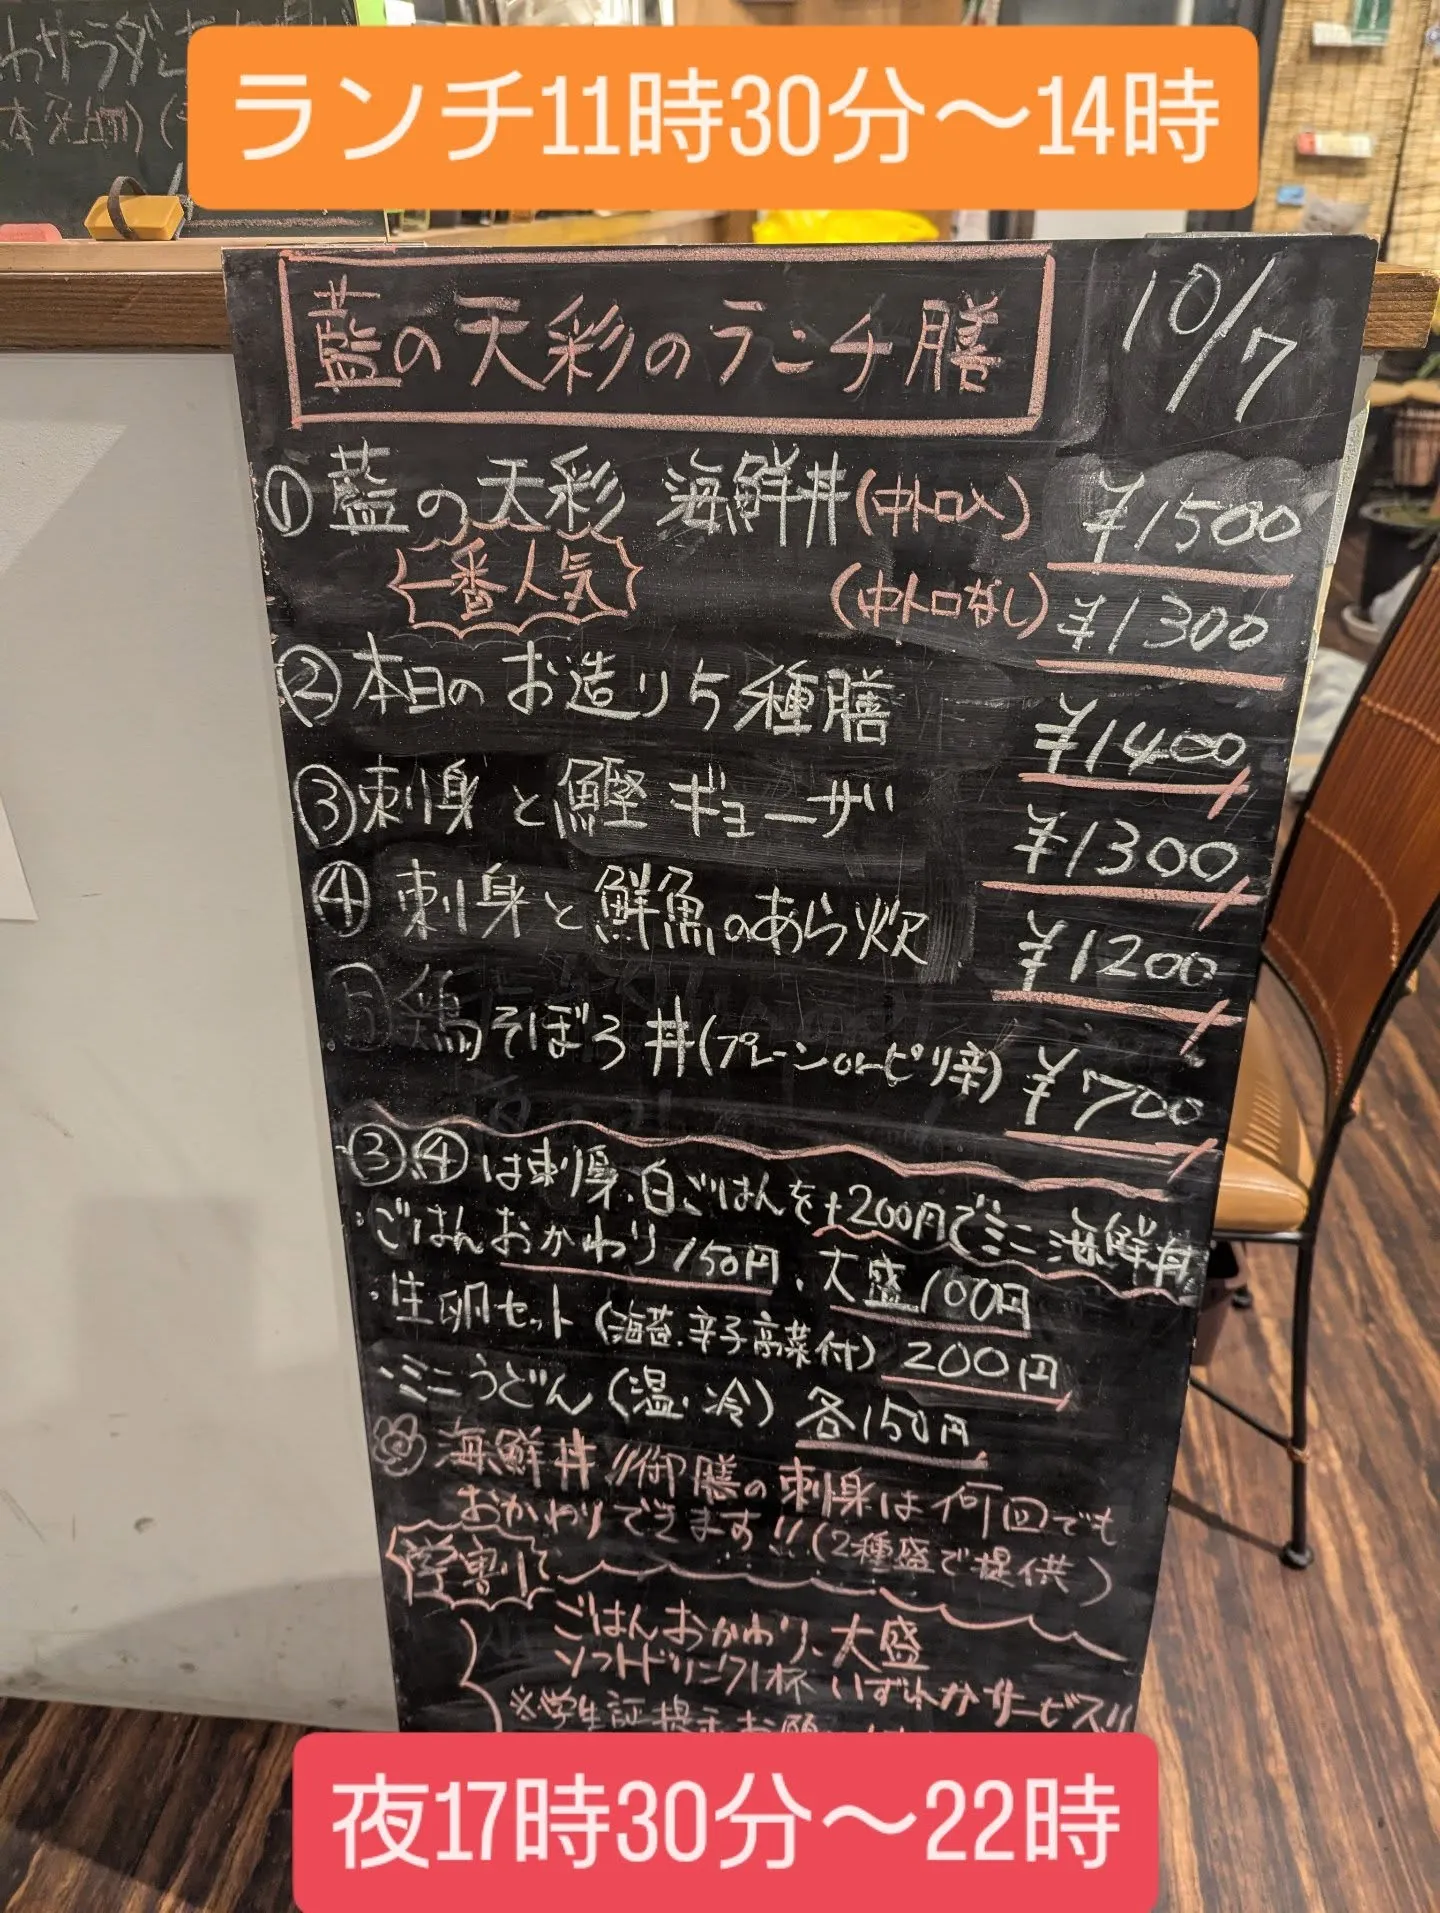 ランチ11時30分〜14時
藍の天彩のランチ膳
10/7
①藍の天彩 海鮮丼(中トロ入) ¥1500
一番人気
(中トロなし) ¥1300
②本日のお造り5種膳 ¥1400
③刺身と鰹ギョーザ ¥1300
④刺身と鮮魚のあら炊 ¥1200
⑤鶏そぼろ丼(プレーンorピリ辛) ¥700
③④は刺身、白ごはんを+200円でミニ海鮮丼
・ごはんおかわり150円、大盛100円
・生卵セット(海苔、辛子高菜付) 200円
・ミニうどん(温・冷) 各150円
海鮮丼//御膳の刺身は何回でも
おかわりできます!!(2種盛で提供)
学割で
ごはんおかわり、大盛
ソフトドリンク1杯 いずれかサービス!!
※学生証提示お願い
夜17時30分〜22時